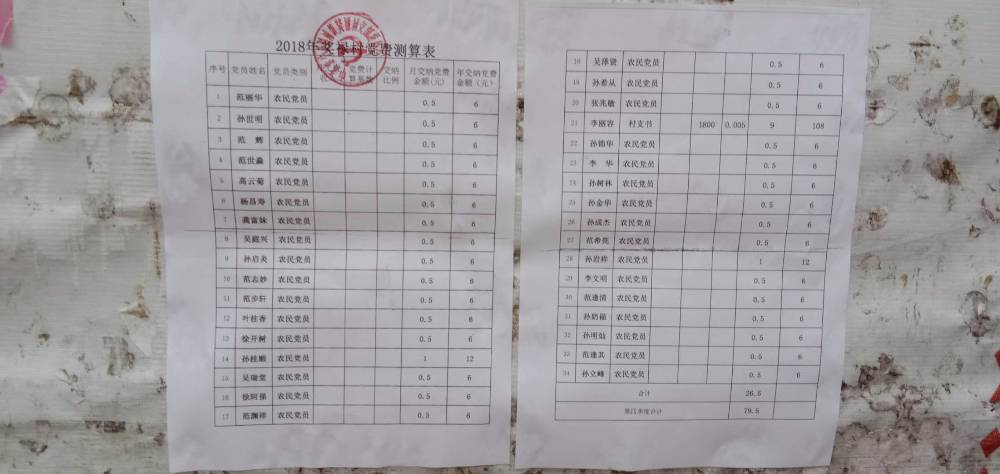 2018年 村党费测算表
序号 党员姓名 党员类别 党费计算基数 交纳比例 月交纳党费金额(元) 年交纳党费金额(元)
1 范丽华 农民党员 0.5 6
2 孙世明 农民党员 0.5 6
3 范 辉 农民党员 0.5 6
4 范世淼 农民党员 0.5 6
5 高云菊 农民党员 0.5 6
6 杨昌寿 农民党员 0.5 6
7 龚富妹 农民党员 0.5 6
8 吴庭兴 农民党员 0.5 6
9 孙启炎 农民党员 0.5 6
10 范志妙 农民党员 0.5 6
11 范步轩 农民党员 0.5 6
12 叶桂香 农民党员 0.5 6
13 徐开树 农民党员 0.5 6
14 孙桂顺 农民党员 1 12
15 吴瑞堂 农民党员 0.5 6
16 徐阿保 农民党员 0.5 6
17 范渊祥 农民党员 0.5 6
18 吴泽贤 农民党员 0.5 6
19 孙希从 农民党员 0.5 6
20 张兆敏 农民党员 0.5 6
21 李丽容 村支书 1800 0.005 9 108
22 孙锦华 农民党员 0.5 6
23 李 华 农民党员 0.5 6
24 孙树林 农民党员 0.5 6
25 孙金华 农民党员 0.5 6
26 孙成杰 农民党员 0.5 6
27 范希亮 农民党员 0.5 6
28 孙岩祥 农民党员 1 12
29 李文明 农民党员 0.5 6
30 范逢清 农民党员 0.5 6
31 孙奶福 农民党员 0.5 6
32 孙明灿 农民党员 0.5 6
33 范逢其 农民党员 0.5 6
34 孙立峰 农民党员 0.5 6
合计 26.5
第四季度合计 79.5